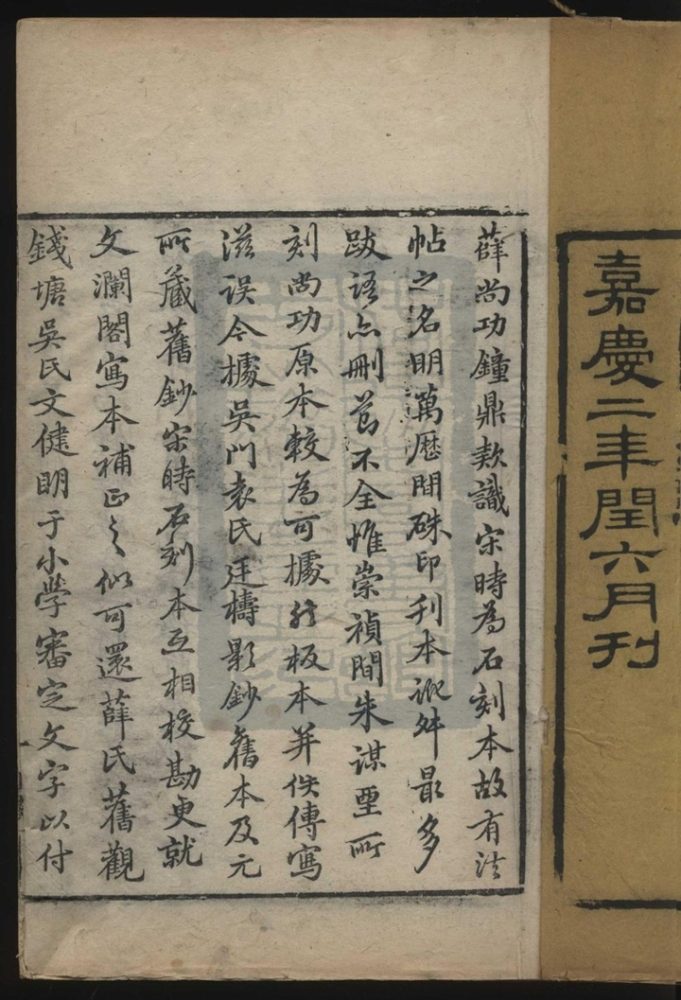 嘉慶二年閏六月刊
薛尚功鐘鼎款識宋時為石刻本故有法
帖之名明萬歷間硃印刊本訛舛最多
跋語亦刪節不全惟崇禎間朱謀垔所
刻尚功原本較為可據然板本并佚傳寫
滋误今據吳門袁氏廷檮影鈔舊本及元
所藏舊鈔宋時石刻本互相校勘更就
文瀾閣寫本補正之似可還薛氏舊觀
錢塘吳氏文健明于小學審定文字以付